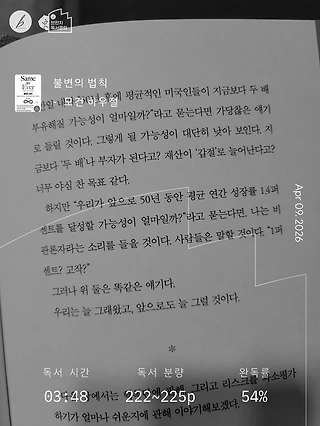 불변의 법칙
모건 하우절
50년 후에 평균적인 미국인들이 지금보다 두 배
부유해질 가능성이 얼마일까?"라고 묻는다면 가당찮은 얘기
로 들릴 것이다. 그렇게 될 가능성이 대단히 낮아 보인다. 지
금보다 '두 배'나 부자가 된다고? 재산이 '갑절'로 늘어난다고?
너무 야심 찬 목표 같다.
하지만 "우리가 앞으로 50년 동안 평균 연간 성장률 1.4퍼
센트를 달성할 가능성이 얼마일까?"라고 묻는다면, 나는 비
관론자라는 소리를 들을 것이다. 사람들은 말할 것이다. "1퍼
센트? 고작?"
그러나 위 둘은 똑같은 얘기다.
우리는 늘 그래왔고, 앞으로도 늘 그럴 것이다.
*
Apr 09, 2026
독서 시간 독서 분량 완독률
03:48 222~225p 54%
그리고 리스크를 과소평가
하기가 얼마나 쉬운지에 관해 이야기해보겠다.
Same
as
Ever